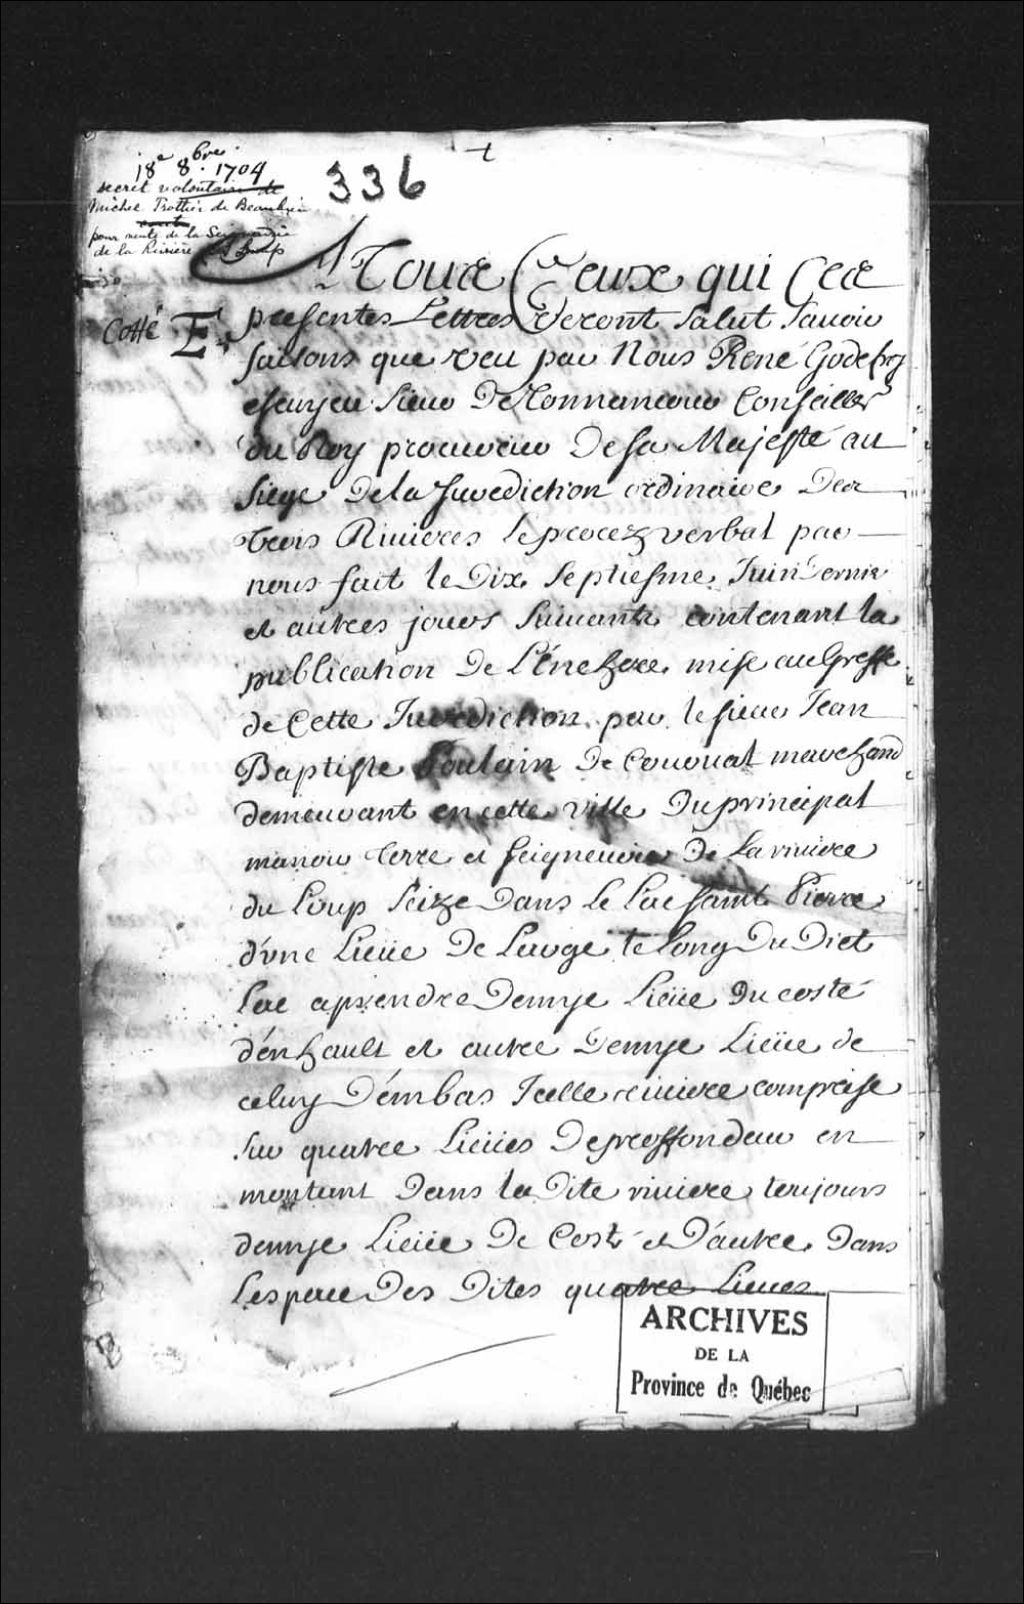 18e 8bre 1704
decret volontaire de
Michel Trottier de Beaubien
pour vente de la Seigneurie
de la Riviere du Loup
336
A Tous Ceux qui Ces
Cotté E.
presentes Lettres Veront Salut Sauoir
faisons que veu par Nous René Godefroy
escuyer Sieur De Tonnancour Conseiller
du Roy procureur De sa Majesté au
Siege De la Jurediction ordinaire Des
trois Riuieres le procez verbal par
nous fait le Dix Septiesme Juin Dernier
et autres jours Suiuants contenant la
publication De L'énchere mise au Greffe
de Cette Jurediction par le sieur Jean
Baptiste Poulain De Couruat marchand
demeurant en cette ville Du principal
manoir terre et seigneurie De la riuiere
du Loup Seize Dans le Lac saint Pierre
d'vne Lieüe De Large le long Du Dict
Lac aprendre Demye Lieüe Du costé
d'énhault et autre Demye Lieüe de
celuy D'émbas Icelle riuiere comprise
Sur quatre Lieües De proffondeur en
montant Dans la Dite riuiere toujours
demye Lieüe De Costé et D'autre Dans
Lespace Des Dites quatre Lieues
ARCHIVES
DE LA
Province de Québec